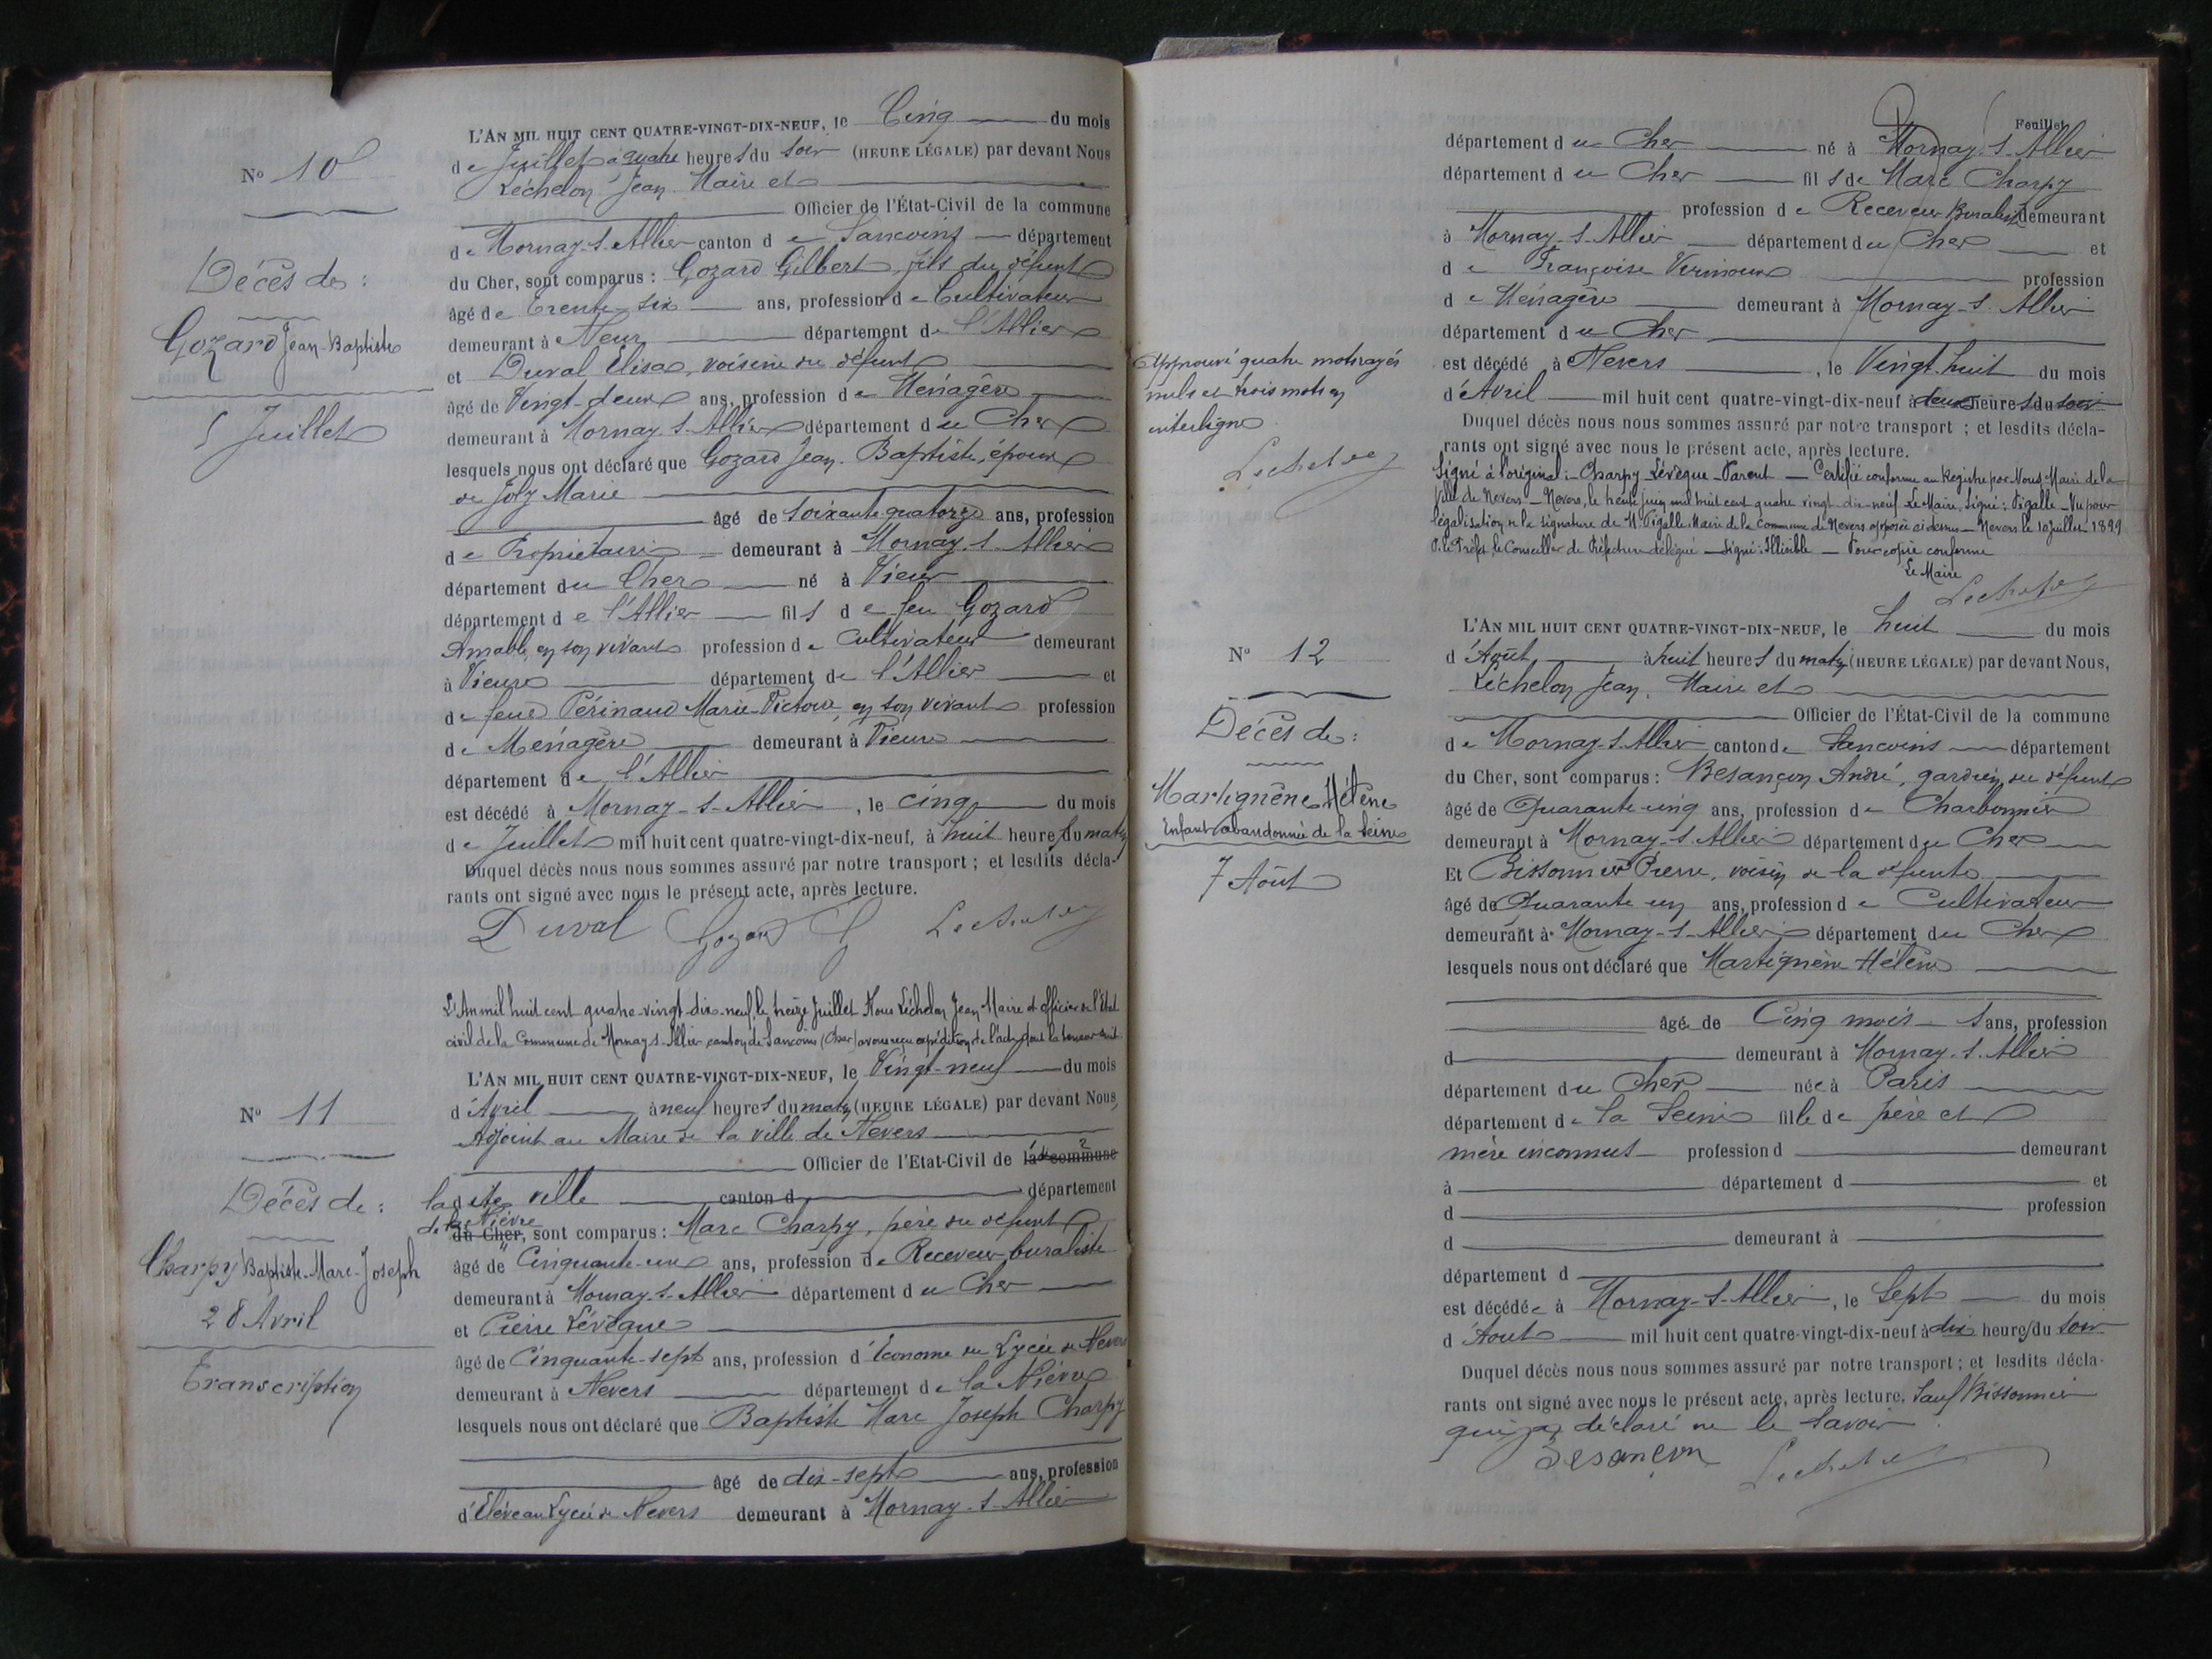 N° 10
Décès de :
Gozard Jean-Baptiste
5 Juillet
L'AN MIL HUIT CENT QUATRE-VINGT-DIX-NEUF, le Cinq du mois
de Juillet à quatre heures du soir (HEURE LÉGALE) par devant Nous
Léchelon Jean. Maire et
Officier de l'État-Civil de la commune
de Mornay-s-Allier canton de Sancoins département
du Cher, sont comparus : Gozard Gilbert, fils du défunt
âgé de trente-six ans, profession de Cultivateur
demeurant à département de l'Allier
et Duval Elisa, voisine du défunt
âgé de Vingt-deux ans, profession de Ménagère
demeurant à Mornay-s-Allier département du Cher
lesquels nous ont déclaré que Gozard Jean-Baptiste, époux
de Joly Marie
âgé de soixante quatorze ans, profession
de Propriétaire demeurant à Mornay-s-Allier
département du Cher né à Vieure
département de l'Allier fils de feu Gozard
Amable, en son vivant profession de Cultivateur demeurant
à Vieure département de l'Allier et
de feue Périnaud Marie-Victoire, en son vivant profession
de Ménagère demeurant à Vieure
département de l'Allier
est décédé à Mornay-s-Allier, le cinq du mois
de Juillet mil huit cent quatre-vingt-dix-neuf, à huit heures du matin
Duquel décès nous nous sommes assuré par notre transport ; et lesdits décla-
rants ont signé avec nous le présent acte, après lecture.
Duval Gozard G Lechelon
N° 11
Décès de :
Charpy Baptiste-Marc-Joseph
28 Avril
Transcription
L'An mil huit cent quatre-vingt-dix-neuf, le treize Juillet Nous Léchelon Jean Maire et Officier de l'Etat
civil de la Commune de Mornay-s-Allier, canton de Sancoins (Cher) avons reçu expédition de l'acte dont la teneur suit
L'AN MIL HUIT CENT QUATRE-VINGT-DIX-NEUF, le Vingt-neuf du mois
d'Avril à neuf heures du matin (HEURE LÉGALE) par devant Nous,
Adjoint au Maire de la ville de Nevers
Officier de l'Etat-Civil de la commune
ladite ville canton d département
de la Nièvre
du Cher, sont comparus : Marc Charpy, père du défunt
âgé de Cinquante-un ans, profession de Receveur-buraliste
demeurant à Mornay-s-Allier département du Cher
et Pierre Lévêque
âgé de Cinquante-sept ans, profession d'Econome du Lycée de Nevers
demeurant à Nevers département de la Nièvre
lesquels nous ont déclaré que Baptiste Marc Joseph Charpy
âgé de dix-sept ans, profession
d'Elève au Lycée de Nevers demeurant à Mornay-s-Allier
Feuillet
département du Cher né à Mornay-s-Allier
département du Cher fils de Marc Charpy
profession de Receveur Buraliste demeurant
à Mornay-s-Allier département du Cher et
de Françoise profession
de Ménagère demeurant à Mornay-s-Allier
département du Cher
est décédé à Nevers, le Vingt-huit du mois
d'Avril mil huit cent quatre-vingt-dix-neuf à deux heures du soir
Duquel décès nous nous sommes assuré par notre transport ; et lesdits décla-
rants ont signé avec nous le présent acte, après lecture.
Signé à l'original : Charpy - Lévêque - Parent - Certifié conforme au Registre par Nous Maire de la
ville de Nevers - Nevers, le trente juin mil huit cent quatre vingt-dix-neuf. Le Maire, Signé : Pigalle - Vu pour
légalisation de la signature de M. Pigalle, Maire de la commune de Nevers apposée ci-dessus - Nevers le 10 juillet 1899
P. le Préfet, le Conseiller de Préfecture délégué - Signé : Illisible - Pour copie conforme
Le Maire
Lechelon
Approuvé quatre mots rayés
nuls et trois mots en
interligne
Lechelon
N° 12
Décès de :
Martignène Hélène
Enfant abandonnée de la Seine
7 Août
L'AN MIL HUIT CENT QUATRE-VINGT-DIX-NEUF, le huit du mois
d'Août à huit heures du matin (HEURE LÉGALE) par devant Nous,
Léchelon Jean, Maire et
Officier de l'État-Civil de la commune
de Mornay-s-Allier canton de Sancoins département
du Cher, sont comparus : Besançon André, gardien du défunt
âgé de Quarante-cinq ans, profession de Charbonnier
demeurant à Mornay-s-Allier département du Cher
Et Bissonnier Pierre, voisin de la défunte
âgé de Quarante un ans, profession de Cultivateur
demeurant à Mornay-s-Allier département du Cher
lesquels nous ont déclaré que Martignène Hélène
âgé de Cinq mois sans, profession
d demeurant à Mornay-s-Allier
département du Cher née à Paris
département de la Seine fille de père et
mère inconnus profession d demeurant
à département d et
d profession
d demeurant à
département d
est décédée à Mornay-s-Allier, le Sept du mois
d'Août mil huit cent quatre-vingt-dix-neuf à dix heures du soir
Duquel décès nous nous sommes assuré par notre transport ; et lesdits décla-
rants ont signé avec nous le présent acte, après lecture. Sauf Bissonnier
qui a déclaré ne le savoir
Besançon Lechelon